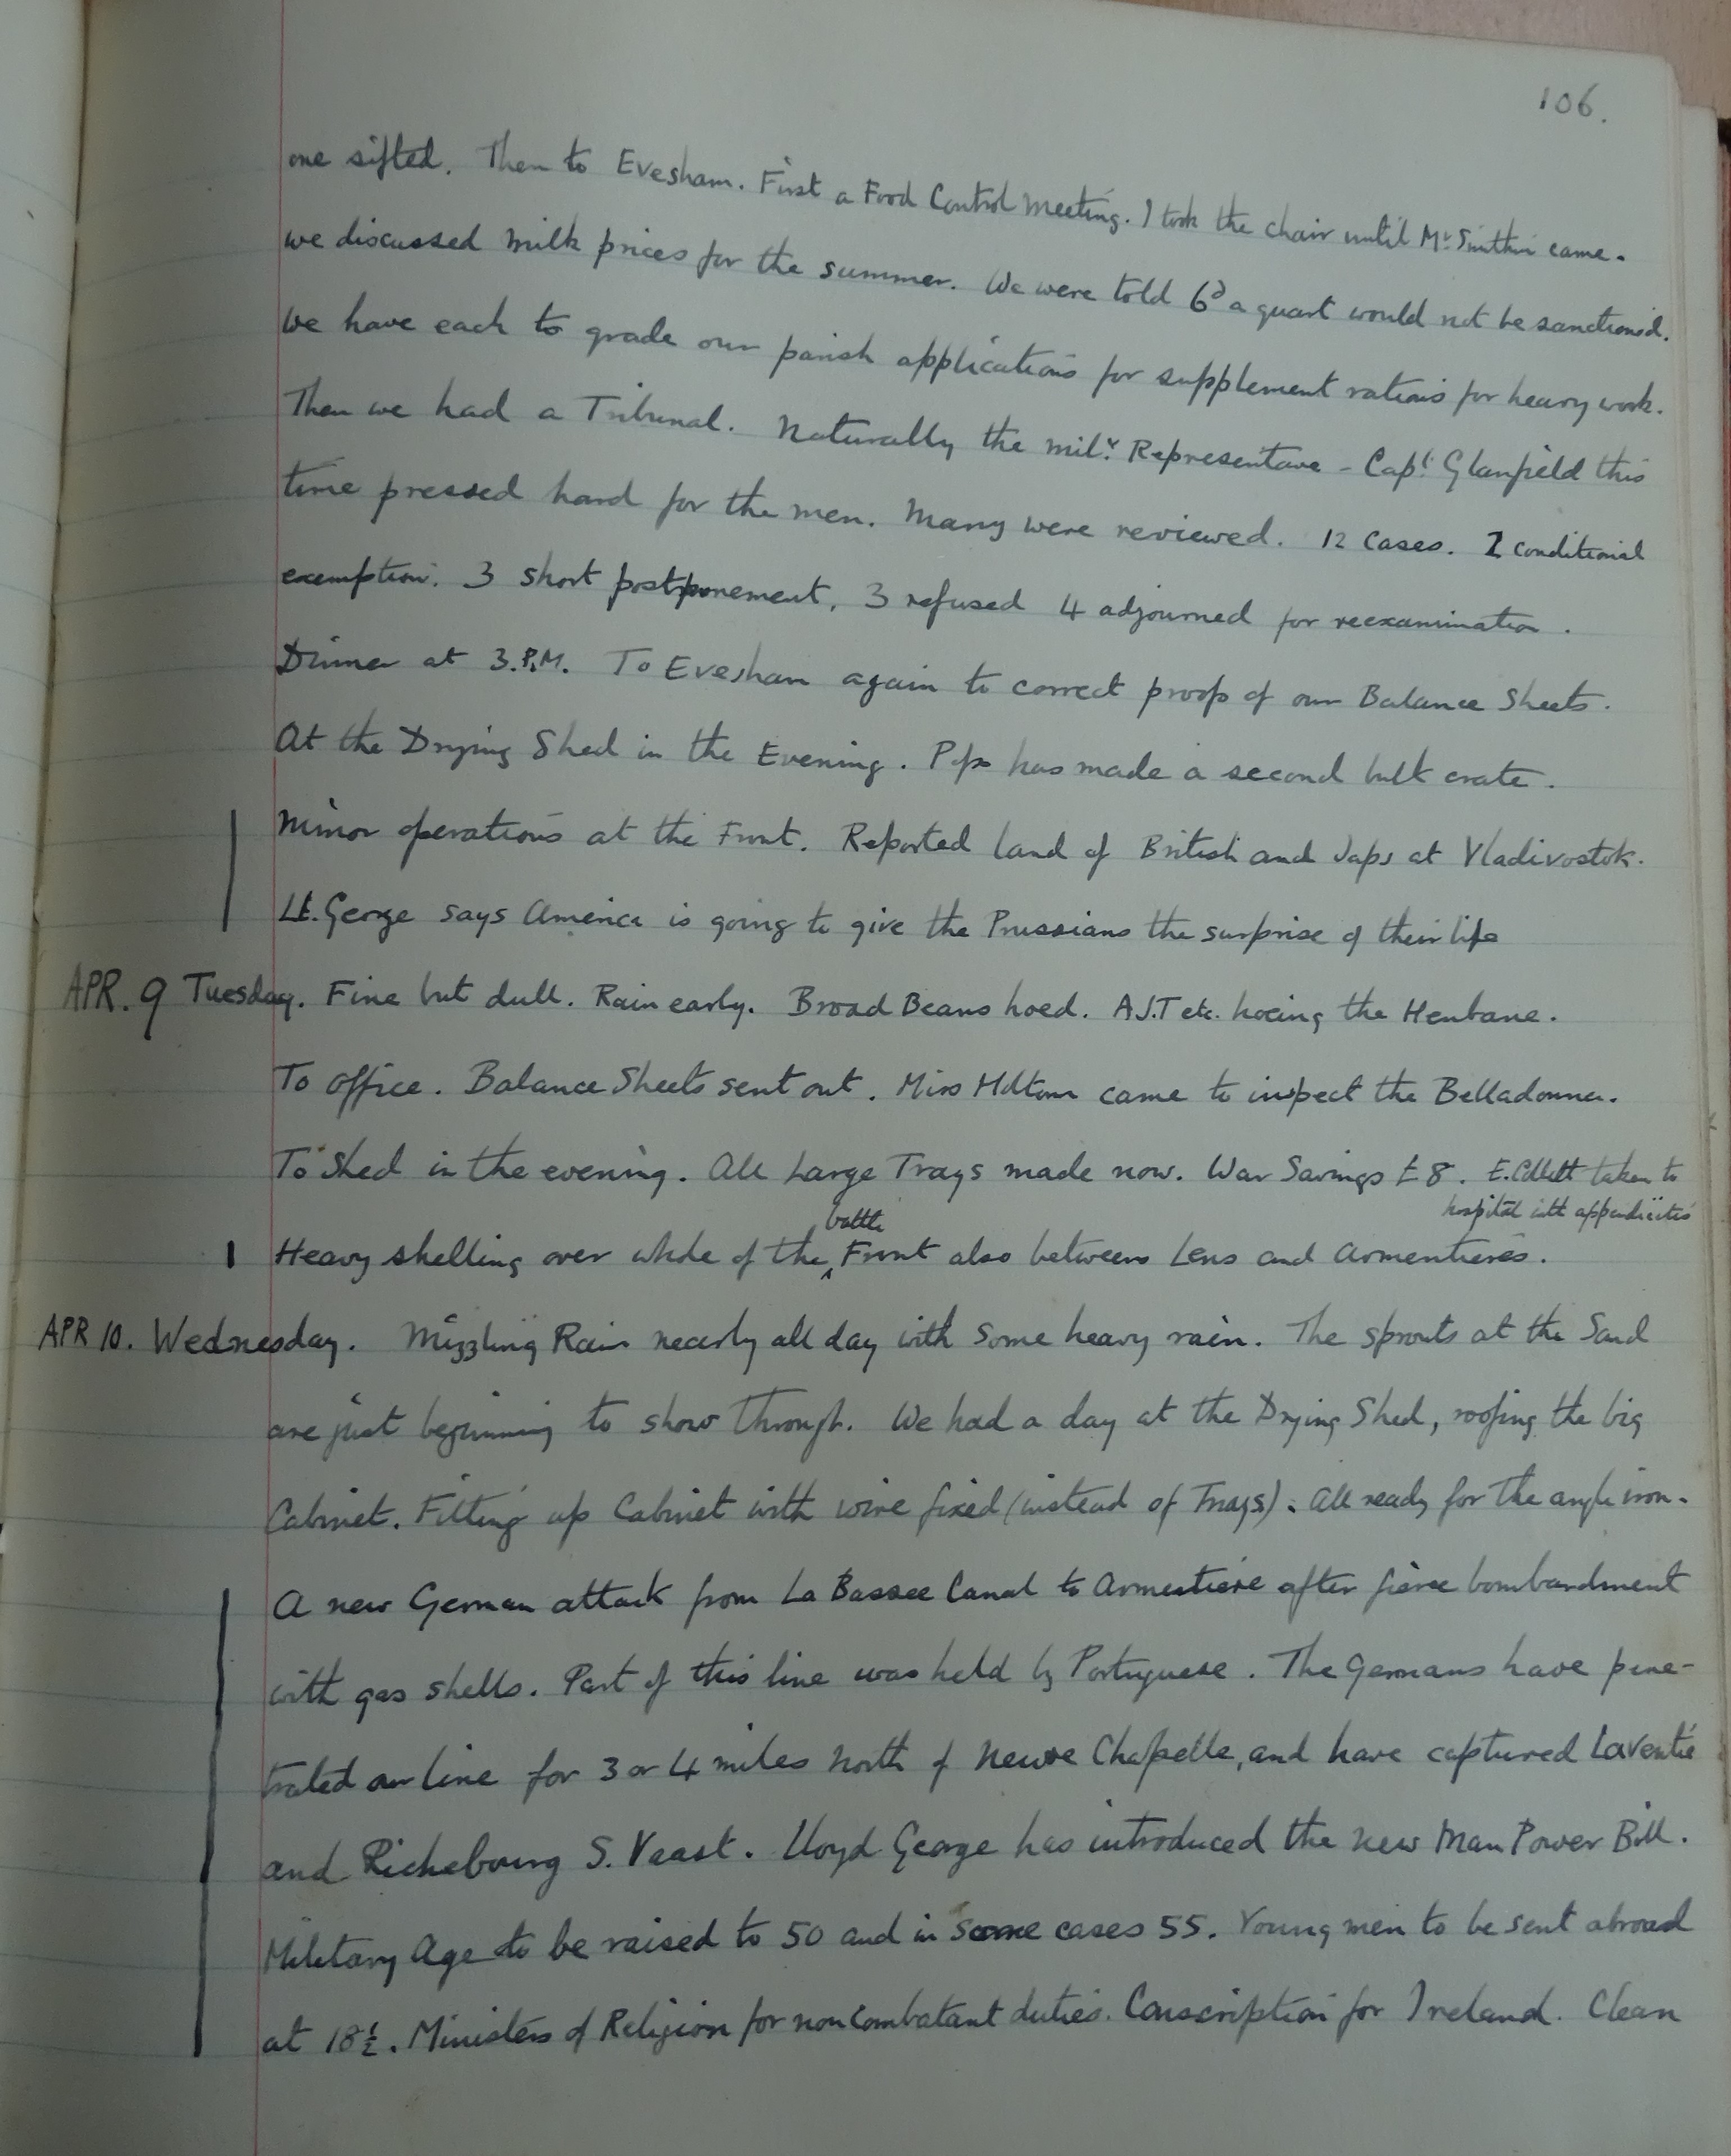 106.
one sifted. Then to Evesham. First a Food Control Meeting. I took the chair until Mr Smithin came.
we discussed milk prices for the summer. We were told 6d a quart would not be sanctioned.
We have each to grade our parish applications for supplement rations for heavy work.
Then we had a Tribunal. Naturally the mily Representave - Capt Glanfield this
time pressed hard for the men. Many were reviewed. 12 Cases. 2 conditional
exemption. 3 short postponement, 3 refused 4 adjourned for reexamination.
Dinner at 3.P.M. To Evesham again to correct proofs of our Balance Sheets.
At the Drying Shed in the Evening. has made a second bulk crate.
Minor operations at the Front. Reported land of British and Japs at Vladivostok.
Ll. George says America is going to give the Prussians the surprise of their life
APR. 9 Tuesday. Fine but dull. Rain early. Broad Beans hoed. A.J.T etc. hoeing the Henbane.
To office. Balance Sheets sent out. Miss came to inspect the Belladonna.
To Shed in the evening. All Large Trays made now. War Savings £8. E. Collett taken to
hospital with appendicitis
battle
Heavy shelling over whole of the ‸ Front also between Lens and Armentieres.
APR 10. Wednesday. Mizzling Rain nearly all day with some heavy rain. The sprouts at the Sand
are just beginning to show through. We had a day at the Drying Shed, roofing the big
Cabinet. Fitting up Cabinet with wire fixed (instead of Trays). All ready for the angle iron.
A new German attack from La Bassee Canal to Armentiere after fierce bombardment
with gas shells. Part of this line was held by Portuguese. The Germans have pene-
trated our line for 3 or 4 miles North of Neuve Chapelle, and have captured Laventie
and Richebourg S. Vaast. Lloyd George has introduced the new Man Power Bill.
Military Age to be raised to 50 and in some cases 55. Young men to be sent abroad
at 18½. Ministers of Religion for non Combatant duties. Conscription for Ireland. Clean